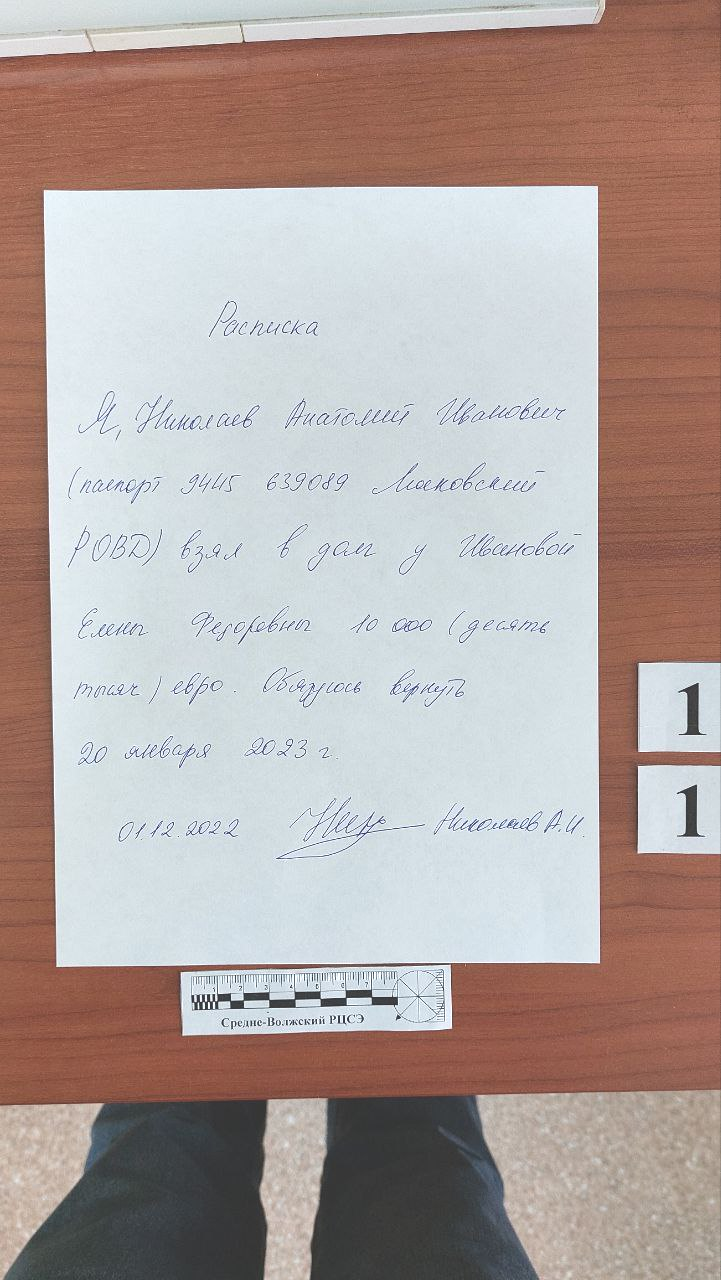 Расписка
Я, Николаев Анатолий Иванович
(паспорт 9445 639089 Московский
РОВД) взял в долг у Ивановой
Елены Федоровны 10 000 (десять
тысяч) евро. Обязуюсь вернуть
20 января 2023 г.
01.12.2022 Николаев А.И.
1
1
1 2 3 4 5 6 7
Средне-Волжский РЦСЭ